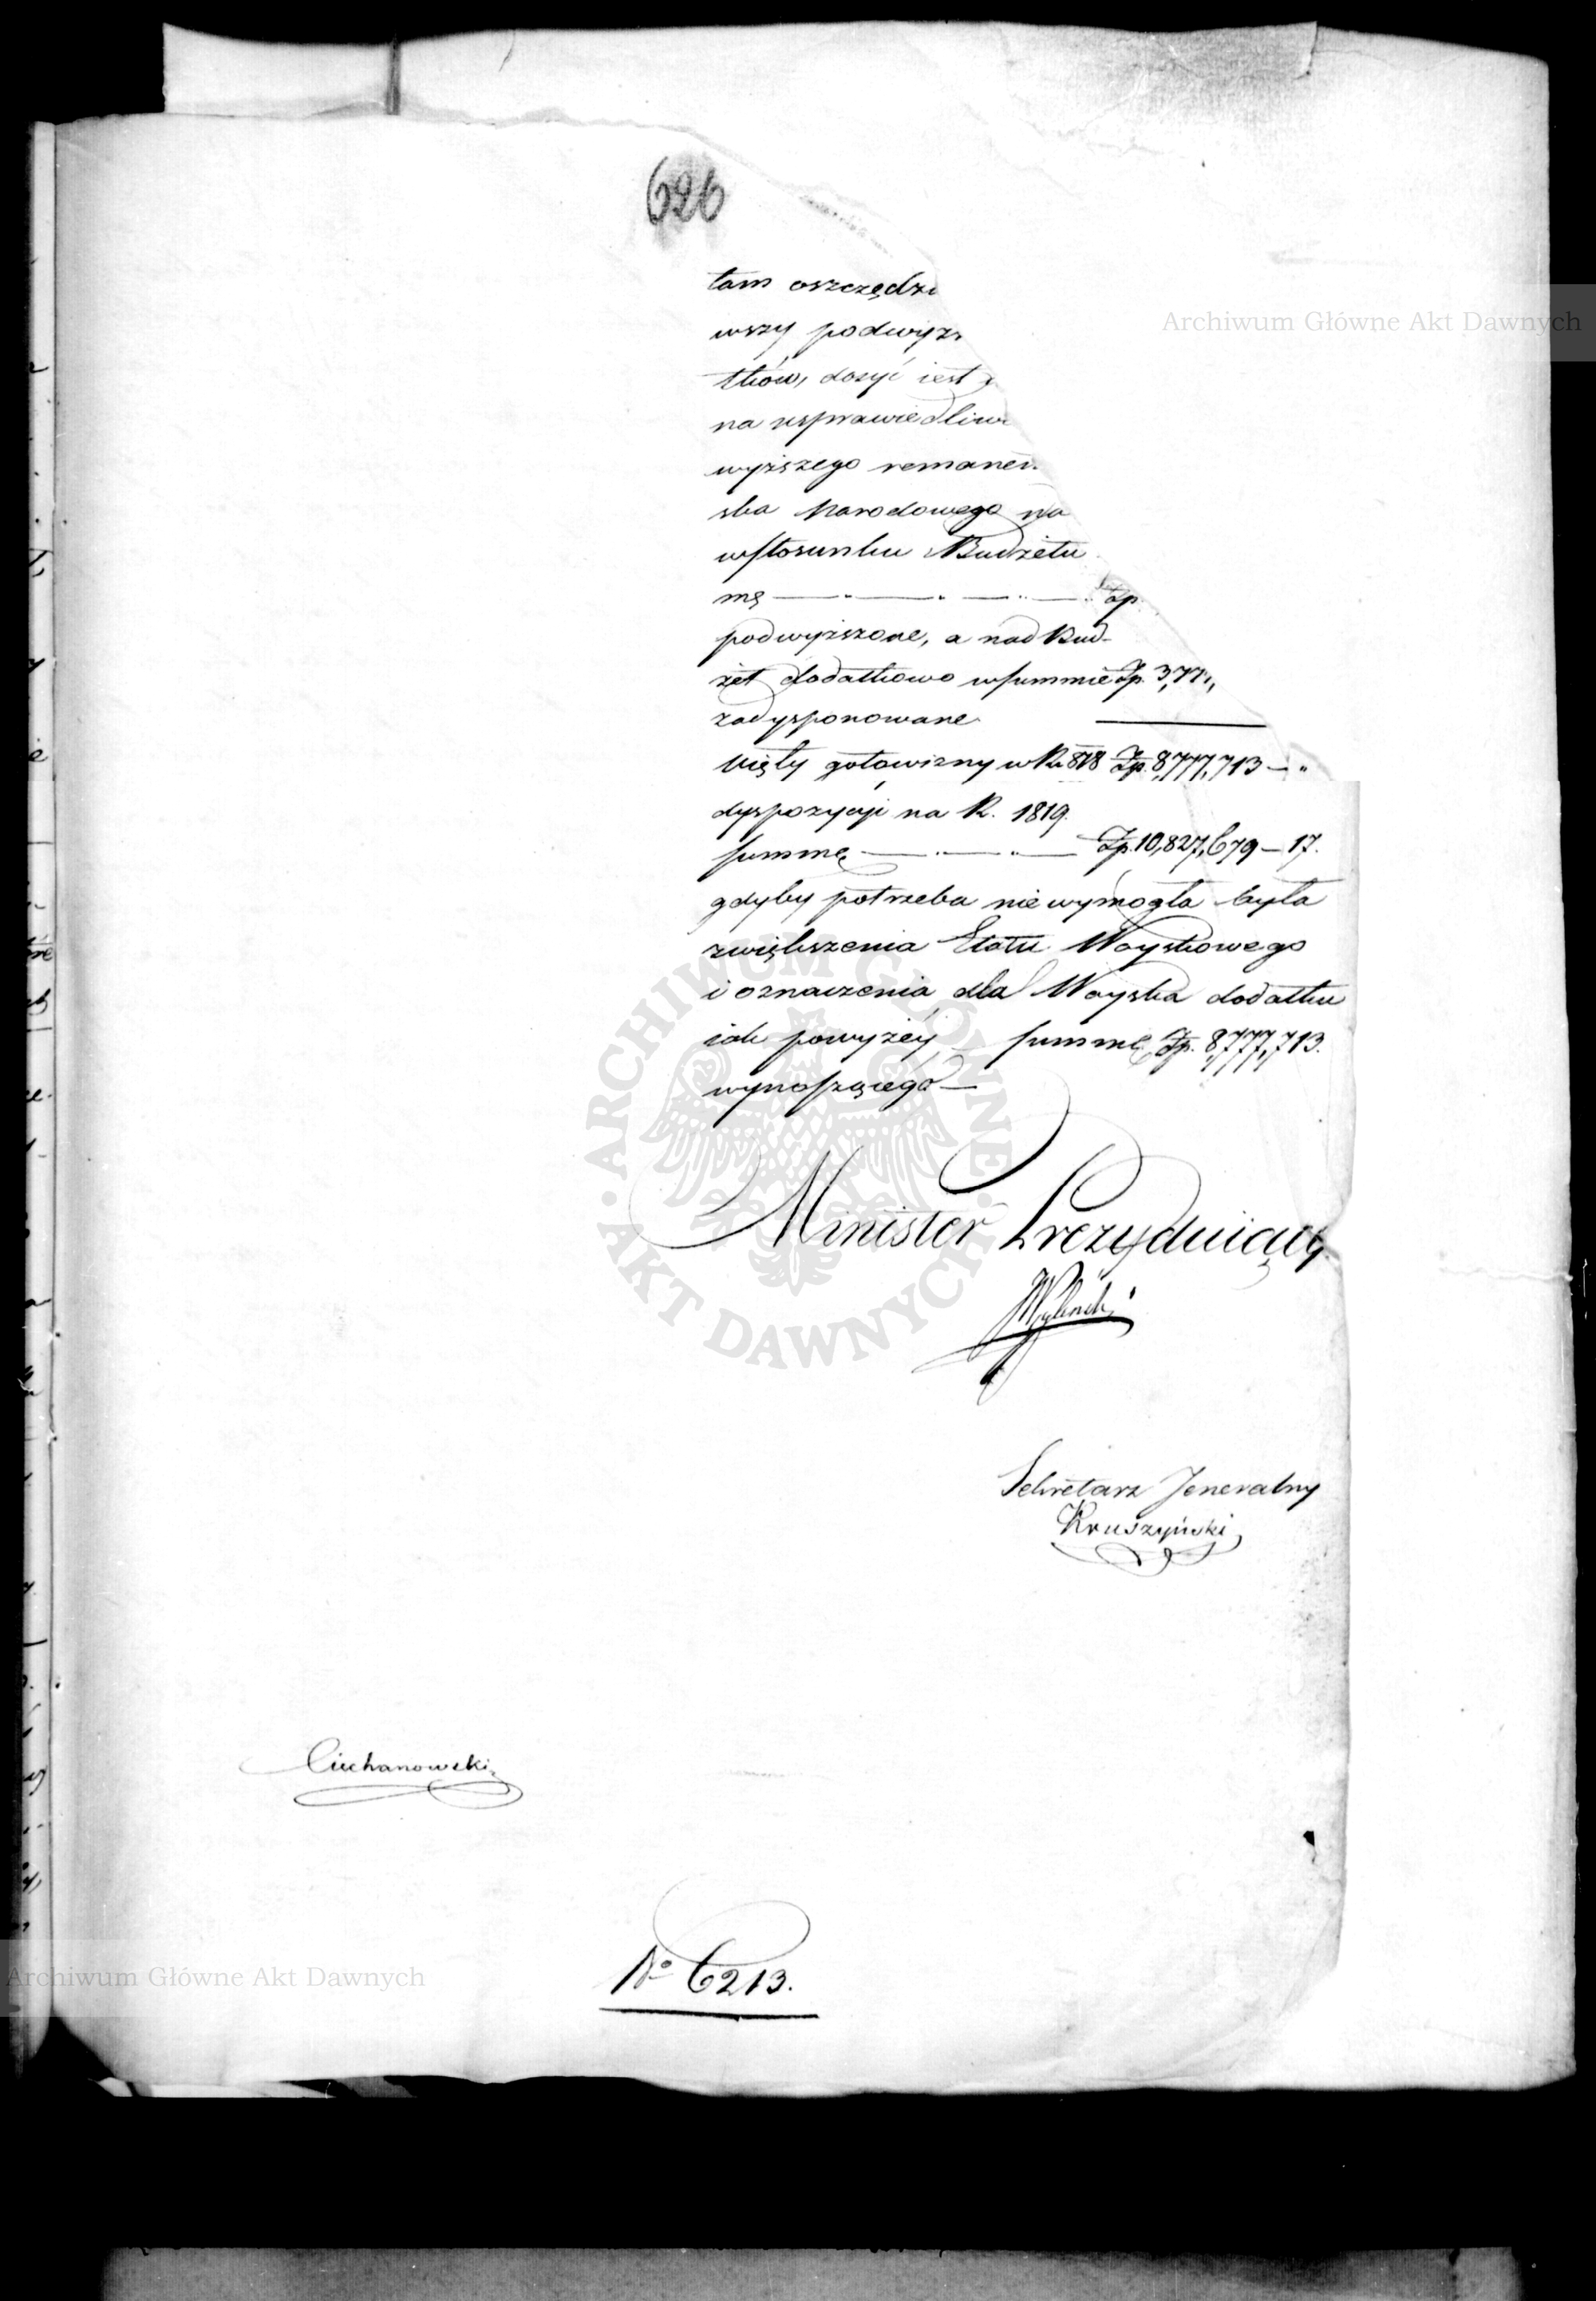 626
tam oszczędzi
wszy podwyżs
tków, dosyć iest
na usprawiedliwi
wyższego remanen
ska Narodowego na
wstosunku Budżetu
mę — " — " — " — Zp.
podwyższone, a nad Bud-
żet dodatkowo wsummie Zp. 3,77
zadysponowane.
ujęły gotowizny w R. 818 Zp. 8,777,713 — "
dyspozycyi na R. 1819.
summę — " — " — Zp. 10,827,679 — 17.
gdyby potrzeba niewymogła była
zwiększenia Etatu Woyskowego
i oznaczenia dla Woyska dodatku
iak powyżéy summę Zp. 8,777,713.
wynoszącego —
Minister Prezyduiący
Sekretarz Jeneralny
Kruszyński
Ciechanowski
No 6213.
Archiwum Główne Akt Dawnych
Archiwum Główne Akt Dawnych
ARCHIWUM GŁÓWNE AKT DAWNYCH